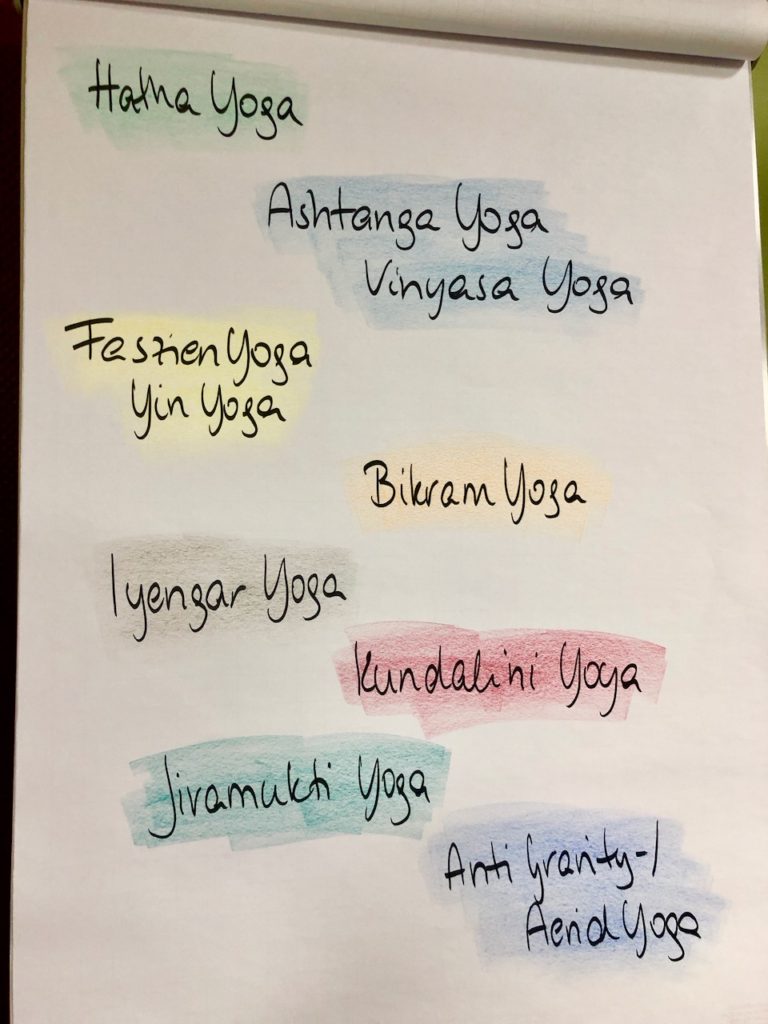 Hatha Yoga
Ashtanga Yoga
Vinyasa Yoga
Faszien Yoga
Yin Yoga
Bikram Yoga
Iyengar Yoga
Kundalini Yoga
Jivamukti Yoga
Anti Gravity-/
Aerial Yoga